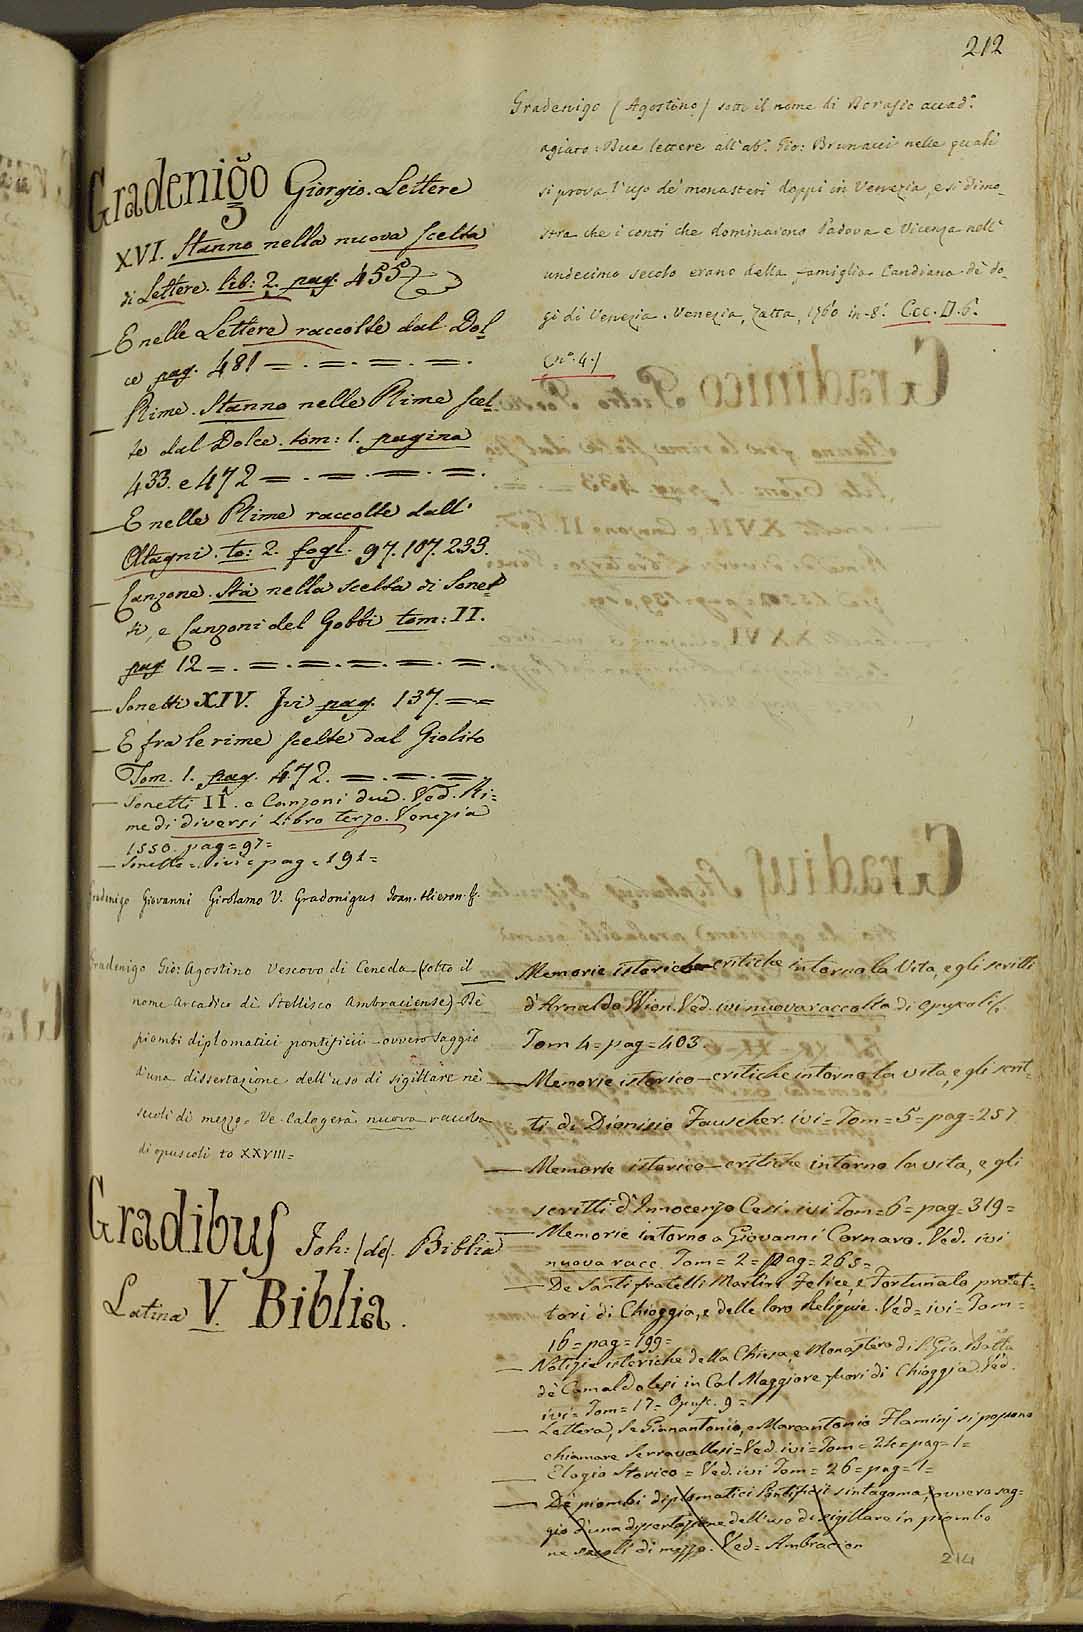 212
Gradenigo Giorgio. Lettere
XVI. Stanno nella nuova scelta
di Lettere. lib: 2. pag. 455
_ E nelle Lettere raccolte dal Dol
ce pag. 481 = . = . = . = .
_ Rime. Stanno nelle Rime scel
te dal Dolce. tom: 1. pagina
433. e 472 = . = . = . = .
_ E nelle Rime raccolte dall'
Atagni. to: 2. fogl. 97. 107. 233.
_ Canzone. Stà nella scelta di Sonet
ti, e Canzoni del Gobbi tom: II.
pag. 12 = . = . = . = . = . = .
_ Sonetti XIV. Ivi pag. 137. = =
_ E fra le rime scelte dal Giolito
Tom. 1. pag. 472. = . = . =
_ Sonetti II. e Canzoni due. Ved. Ri=
me di diversi Libro terzo. Venezia
1550. pag = 97 =
_ Sonetto = ivi = pag = 191 =
Gradenigo Giovanni Girolamo V. Gradonigus Joan. Hieron.
Gradenigo Gio: Agostino Vescovo di Ceneda (sotto il
nome Arcadico di Stellisco Ambraciense) De
piombi diplomatici pontificii ovvero Saggio
d'una dissertazione dell'uso di sigillare nè
secoli di mezzo. Ve. Calogerà nuova raccolta
di opuscoli to XXVIII =
Gradibus Joh: (de). Biblia
Latina V. Biblia.
Gradenigo (Agostino) sotto il nome di accad.º
agiato: Due lettere all'ab.e Gio: Brunacci nelle quali
si prova l'uso de' monasteri doppi in Venezia, e si dimo_
stra che i conti che dominarono Padova e Vicenza nell'
undecimo secolo erano della famiglia Candiana dè do_
gi di Venezia. Venezia, Zatta, 1760 in-8.º Ccc. D. 6.
(n.º 4.)
_ Memorie istorico-critiche intorno la Vita, e gli scritti
d'Arnaldo Wion. Ved. ivi nuova raccolta di opuscoli
Tom 4 = pag = 403
_ Memorie istorico-critiche intorno la vita, e gli scrit-
ti di Dionisio Fauscher. ivi = Tom = 5 = pag = 257
_ Memorie istorico-critiche intorno la vita, e gli
scritti d'Innocenzo Cesi. ivi Tom = 6 = pag = 319 =
_ Memorie intorno a Giovanni Cornaro. Ved. ivi
nuova racc. Tom = 2 = pag = 265 =
_ De Santi fratelli Martiri Felice, e Fortunato protet-
tori di Chioggia, e delle loro Reliquie. Ved = ivi = Tom =
16 = pag = 199 =
_ Notizie istoriche della Chiesa, e Monastero di S. Gio. Batta
dè Camaldolesi in Cal Maggiore fuori di Chioggia. Ved.
ivi = Tom = 17 = Opusc. 9 =
_ Lettera, Se Gianantonio, e Marcantonio Flaminj si possono
chiamare Serravallesi = Ved. ivi = Tom = 24 = pag = 1 =
_ Elogio Storico = Ved. ivi Tom = 26 = pag = 1 =
_ De piombi diplomatici Pontificii sintagoma, ovvero sag=
gio d'una dissertazione dell'uso di sigillare in piombo
ne secoli di mezzo. Ved = Ambracien
214